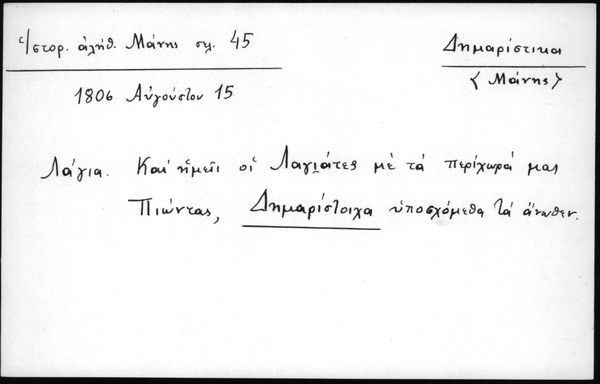 Ἱστορ. ἀλήθ. Μάνης σελ. 45
Δημαρίστικα
<Μάνης>
1806 Αὐγούστου 15
Λάγια. Καὶ ἡμεῖς οἱ Λαγιάτες μὲ τὰ περίχωρά μας
Πιώντας, Δημαρίστοιχα ὑποσχόμεθα τὰ ἄνωθεν.